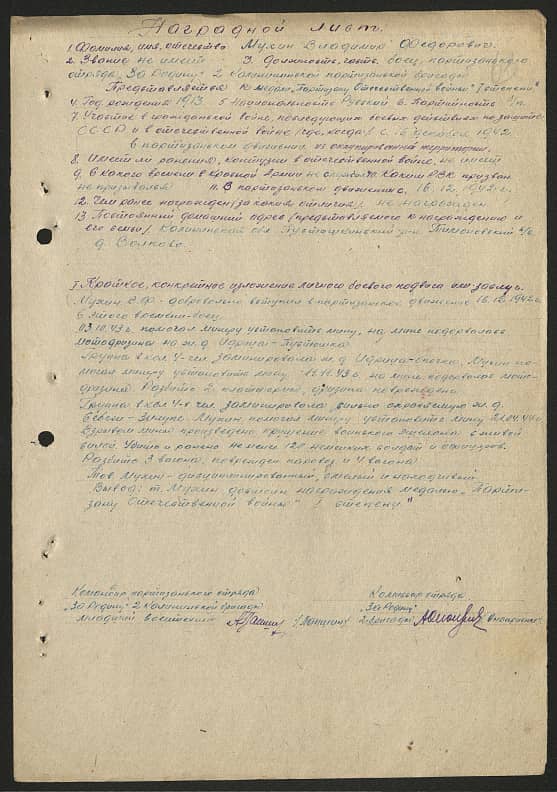 Наградной лист.
1 Фамилия, имя, отчество Мухин Владимир Федорович.
2. Звание не имеет 3. Должность, часть боец, партизанского
отряда "За Родину" 2 Калининской партизанской бригады
Представляется к медали "Партизану Отечественной войны" степени
4. Год рождения 1913. 5 Национальность Русский 6. Партийность б/п.
7. Участие в гражданской войне, последующих боевых действиях по защите
СССР и в отечественной войне (где, когда) с 16 декабря 1942
в партизанском движении на оккупированной территории.
8. Имеет ли ранения, контузии в отечественной войне не имеет
9. С какого времени в Красной Армии не служил 10. Каким РВК призван
не призывался 11. В партизанском движении с 16.12.1942 г.
12. Чем ранее награжден (за какие отличия) не награжден
13. Постоянный домашний адрес (представляемого к награждению и
его семьи) Калининская обл. Пустошкинский р-н. Тимоновский с/с
д. Волково.
I Краткое, конкретное изложение личного боевого подвига или заслуг.
Мухин В.Ф. добровольно вступил в партизанское движение 16.12.1942 г.
С этого времени боец.
03.10.43 г. помогал минеру установить мину, на мине подорвалась
мотодрезина на ж.д Идрица-Пустошка.
Группа в кол. 4-чел. заминировала ж.д Идрица- Мухин по-
могал минеру установить мину. 43 г. на мине подорвалась мото-
дрезина. Разбито 2 платформы, дрезина повреждена.
Группа в кол 4-х чел. заминировала сильно охраняемую ж.д.
Себеж- Мухин помогал минеру установить мину 04.44 г.
Взрывом мины произведено крушение воинского эшелона с живой
силой. Убито и ранено не менее 120 немецких солдат и офицеров.
Разбито 3 вагона, поврежден паровоз и 4 вагона.
Тов Мухин- дисциплинированный, смелый и находчивый.
Вывод: т. Мухин достоин награждения медалью "Парти-
зану Отечественной войны" I степени"
Командир партизанского отряда Комиссар отряда
"За Родину" 2 Калининской бригады "За Родину"
младший 2 бригады